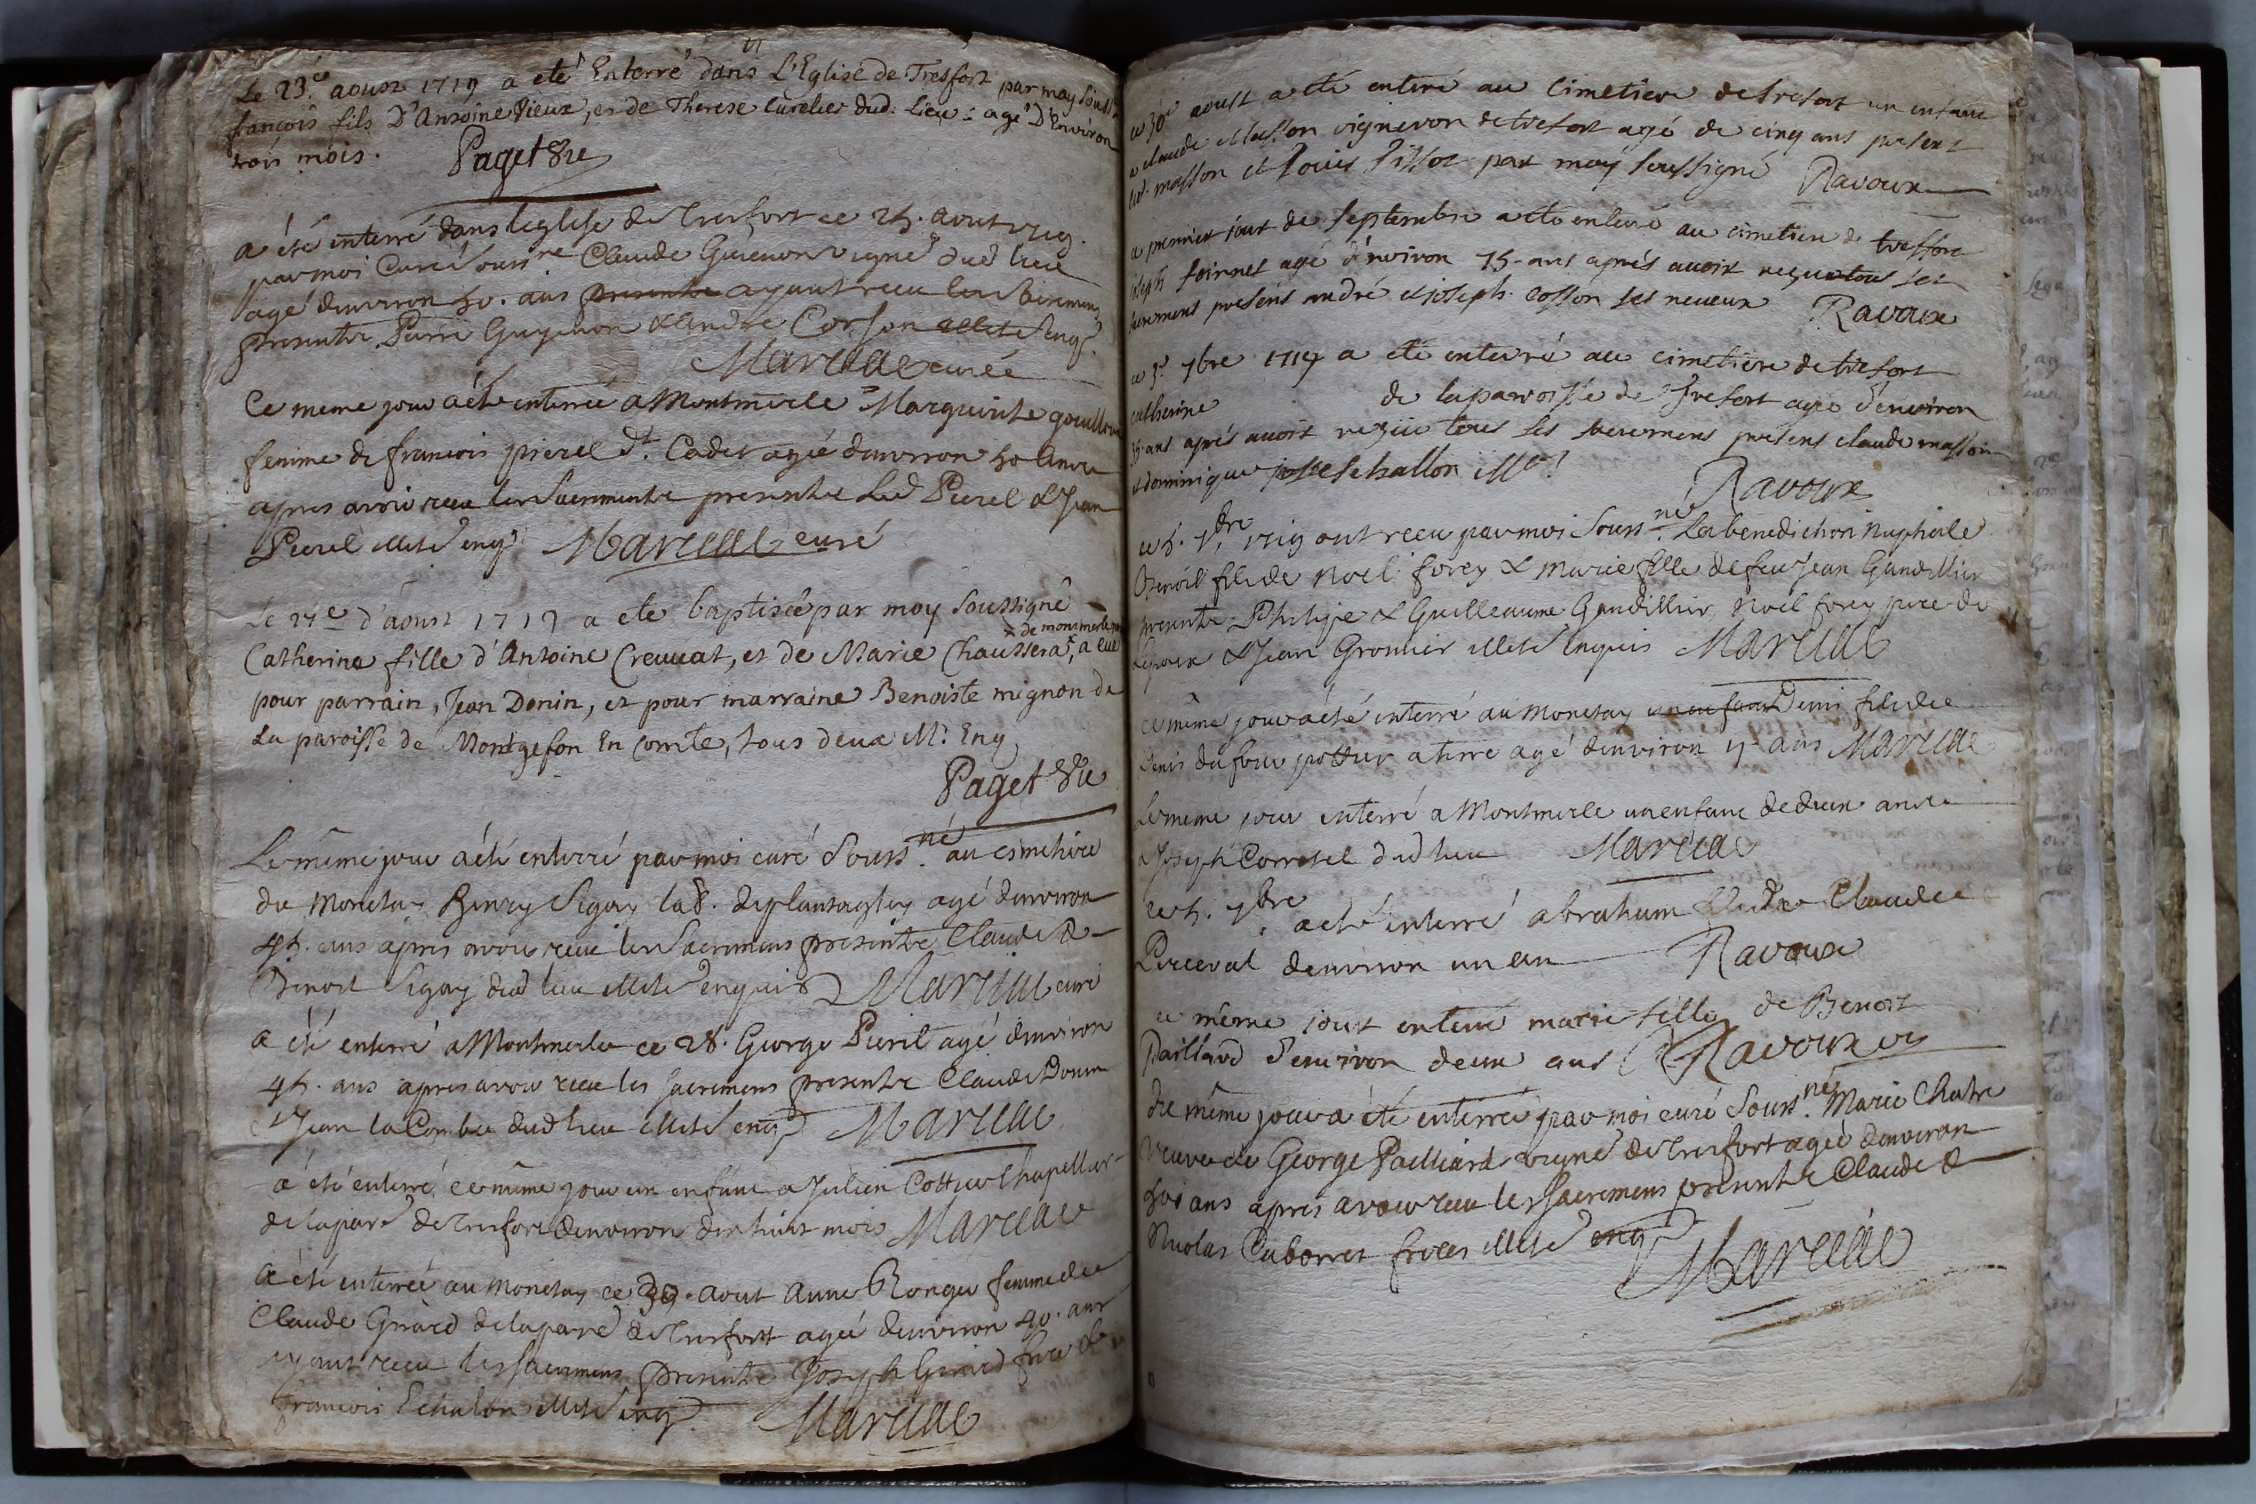 Le 23e aoust 1719 a eté Enterré dans L'Eglise de Tresfort par moy sous
françois fils D'Antoine Vieux, et de Therese Curelier dud. Lieu : agé D'Environ
trois mois. Paget Vic
a été enterré dans leglise de Tresfort ce 25. aout 1719.
par moi Curé souss.ne Claude Guienon vigne dud lieu
agé denviron 50. ans presents ayant receu les sacremens
presents Pierre Guyenon & Andre Corson illité enq.
Marcllac curé
Ce meme jour a été enterrée a Montmerle Marguerite
femme de francois pierel dt. Cadet agée denviron 50 ans
apres avoir receu les sacrements presents led Pierel & Jean
Pierel illité enq. Marcllac curé
Le 27e d'aoust 1719 a ete baptisée par moy soussigné
Catherine fille d'Antoine Crevvat, et de Marie Chaussera, de montmerle a eue
pour parrain, Jean Donin, et pour marraine Benoiste mignon de
La paroisse de Montgefon En comte, tous deux Ill. Enq
Paget Vic
Le même jour a été enterré par moi curé souss.né au cimetiere
du Monetay Benoy Sigay lab. agé denviron
45. ans apres avoir receu les sacremens presents Claude &
Benoit Sigay dud lieu illité enquis Marcllac curé
a été enterré a Montmerle ce 28. George Pieril agé denviron
45. ans apres avoir receu les sacremens presents Claude Donin
& Jean la Combe dud lieu illité enq Marcllac
a été enterré ce même jour un enfant a Julien Cottier Chapellier
de la pare de Tresfort denviron dix huit mois Marcllac
a été enterrée au Monetay ce 30. aout Anne Ronger femme de
Claude Girard de la pare de Tresfort agée denviron 40. ans
ayant receu les sacremens presents Joseph Girard frere &
francois Echalon illité enq. Marcllac
ce 30e aoust a eté enteré au cimetiere de trefort un enfant
a claude Masson vigneron de trefort agé de cinq ans present
led. masson et Louis Pissot par moy soussigné Ravoux
ce premier jour de septembre a eté enteré au cimetiere de treffort
joseph soinnet agé d'environ 75. ans aprés avoir reçu tous les
sacremens presens andré et joseph cosson ses neveux Ravoux
ce 3e 7bre 1719 a eté enterré au cimetiere de trefort
catherine de la paroisse de Trefort agée d'environ
ans aprés avoir reçüe tous les sacremens presens claude masson
et dominique Eschallon Ill.
Ravoux
ce 5. 7bre 1719 ont receu par moi souss.né La benediction nuptiale
Benoit fils de Noel forey & Marie fille de feu Jean Gandillier
presents Philipe & Guilleaume Gandillier, Noel forey pere de
Lepoux & Jean Gronier illité enquis Marcllac
ce même jour a été enterré au Monetay un enfant Denis fils de
Denis du four pottier a terre agé denviron ans Marcllac
Le meme jour enterré a Montmerle un enfant de deux ans
a Joseph Corretel dud lieu Marcllac
ce 5. 7bre a eté enterré abraham fils de Claude
Perceval denviron un an Ravoux
ce même jour enteré marie fille de Benoit
Paillard d'environ deux ans Ravoux
du même jour a été enterrée par moi curé souss.né Marie Chatre
veuve de George Pailliard vigne de Tresfort agée denviron
ans apres avoir receu les sacremens presents Claude &
Nicolas Cabornet freres illité enq
Marcllac